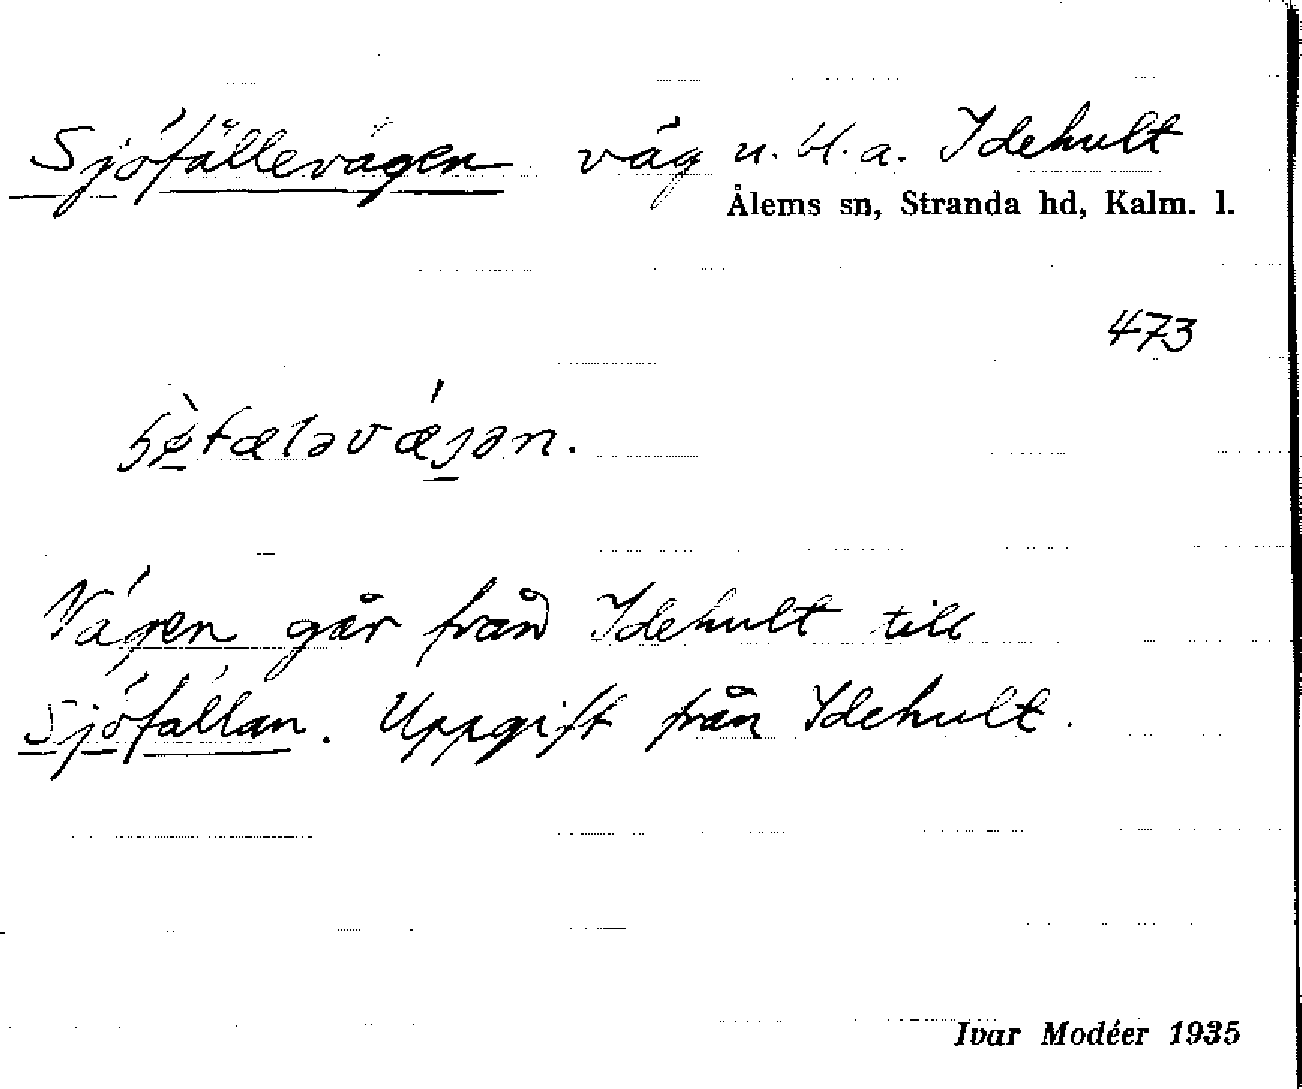 Sjöfällevägen väg u. bl. a. Idehult
Ålems sn, Stranda hd, Kalm. l.
473
Vägen går från Idehult till
Sjöfällan. Uppgift från Idehult.
Ivar Modéer 1935